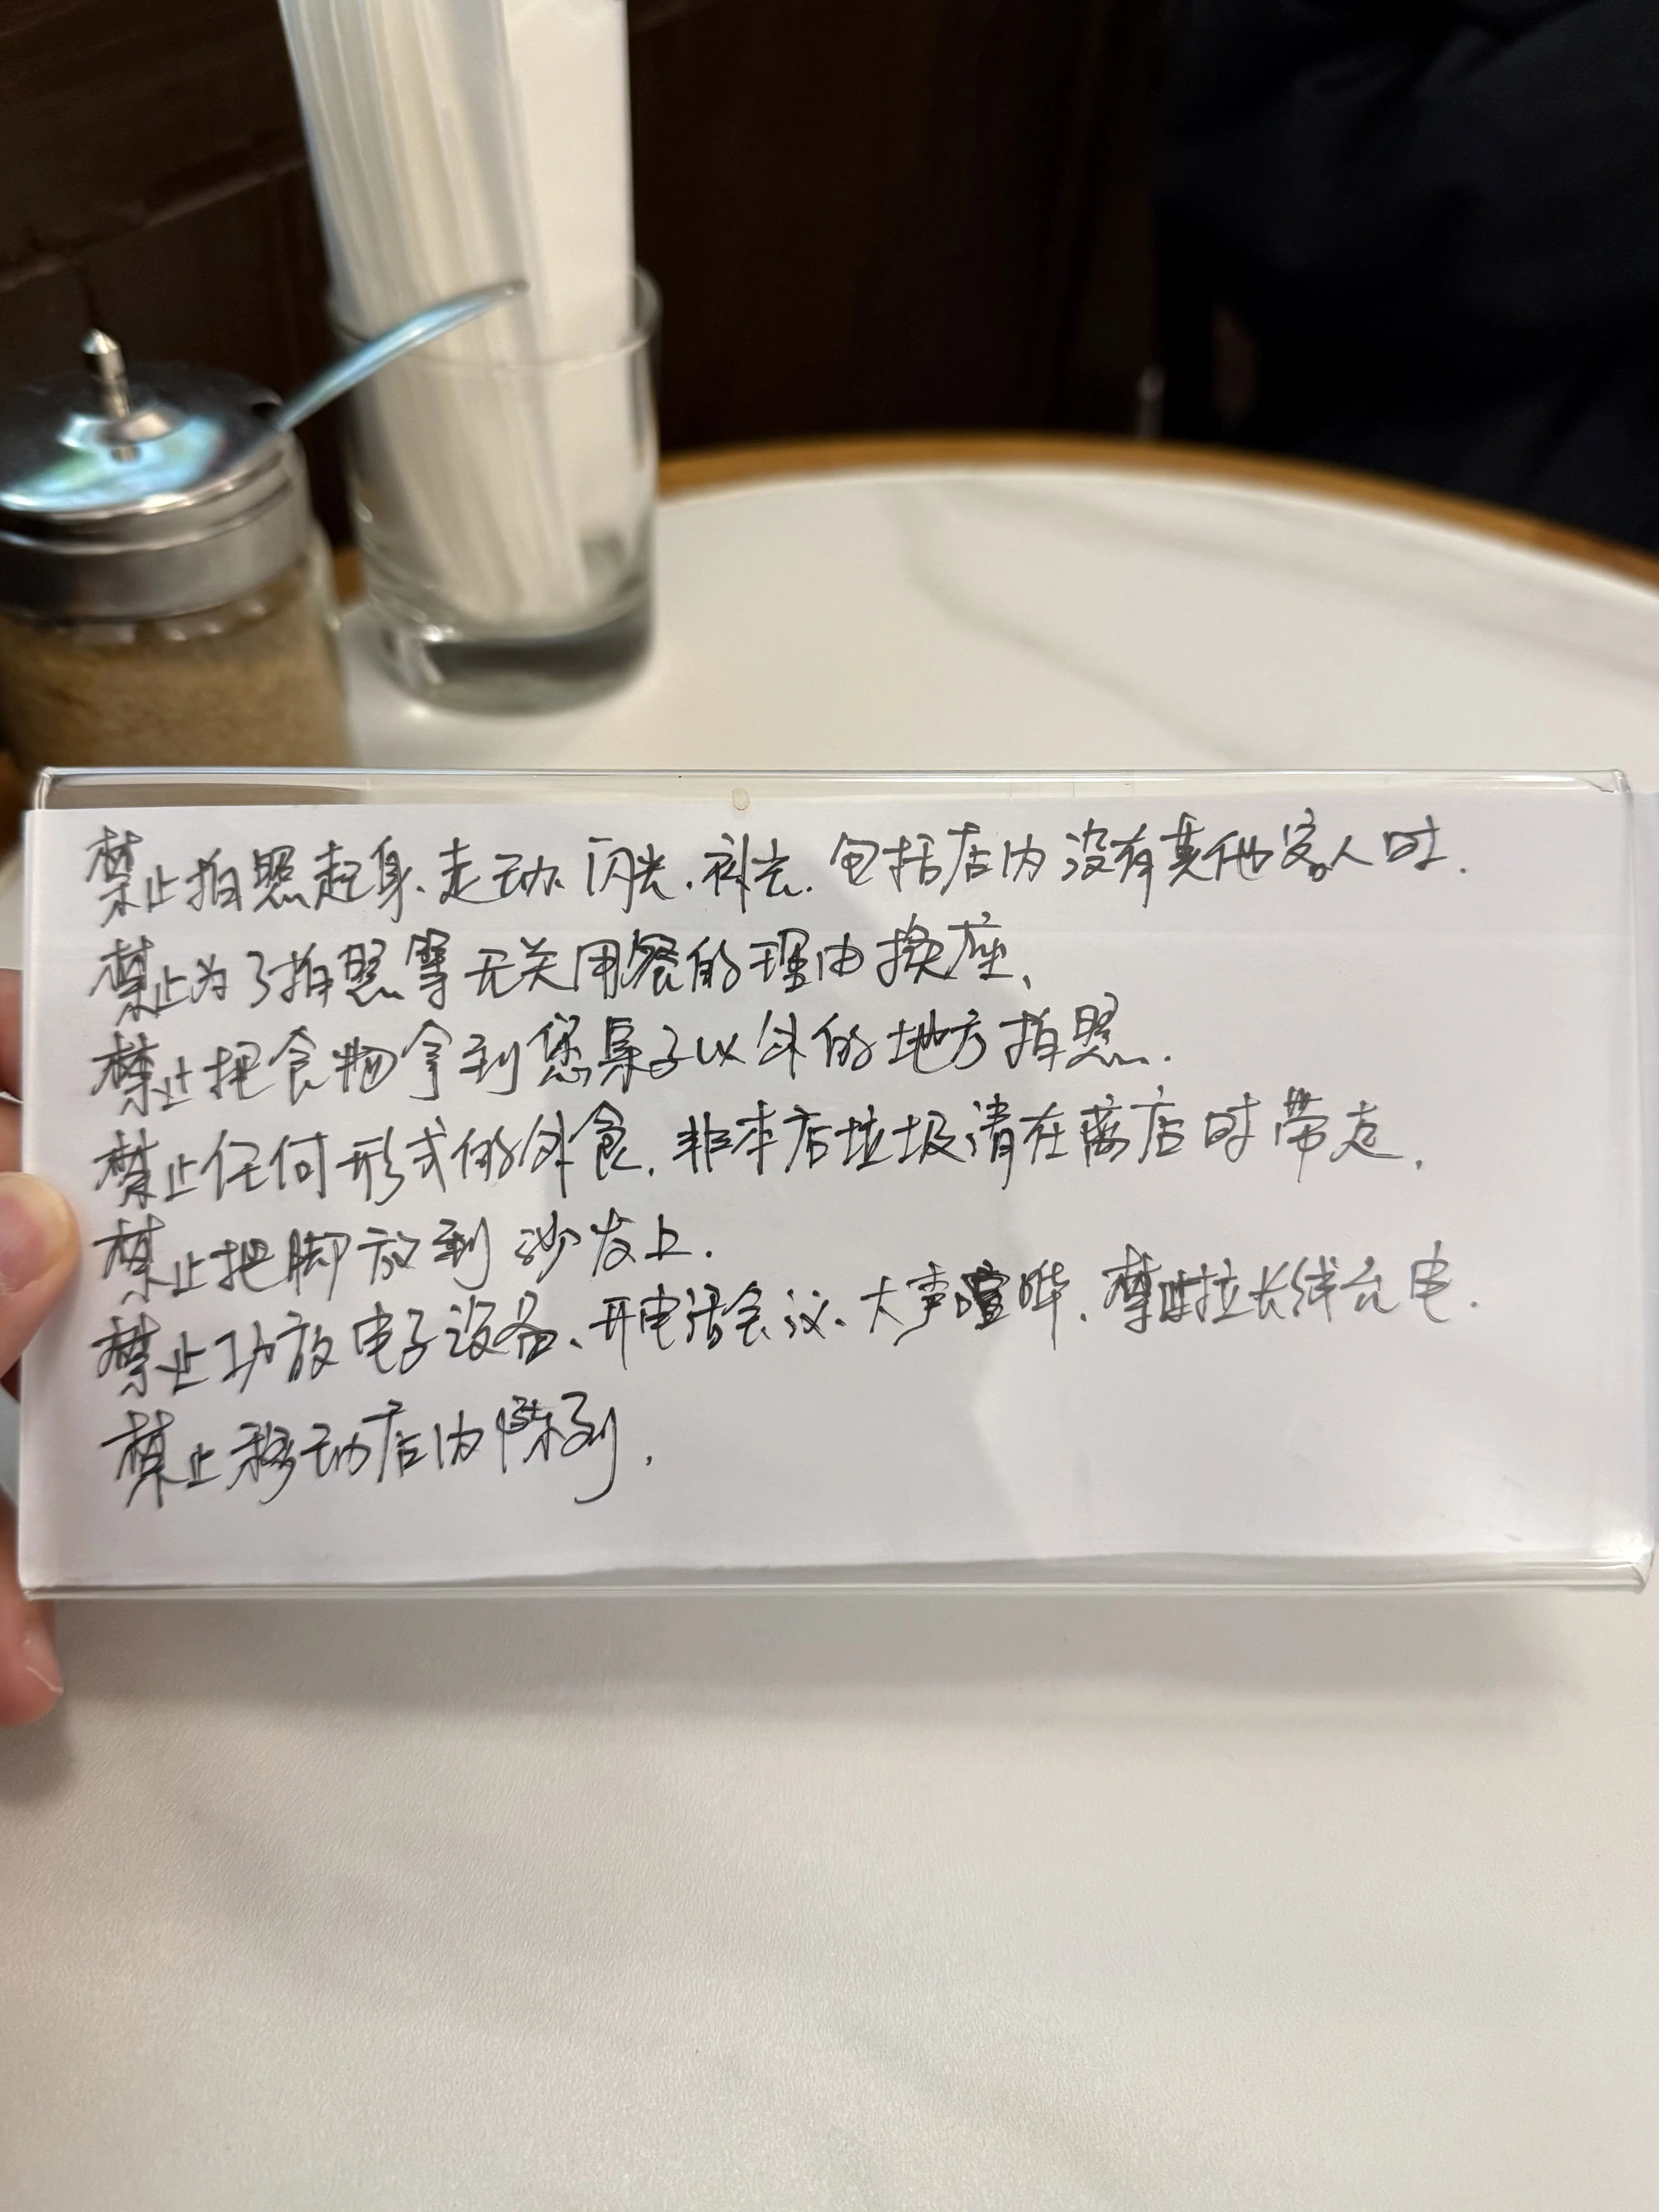 禁止拍照起身、走动、闪光、补光.包括店内没有其他客人时.
禁止为了拍照等无关用餐的理由换座、
禁止把食物拿到您桌子以外的地方拍照.
禁止任何形式的外食.非本店垃圾请在离店时带走.
禁止把脚放到沙发上.
禁止功放电子设备、开电话会议、大声喧哗.禁止拉长线充电.
禁止移动店内陈列.